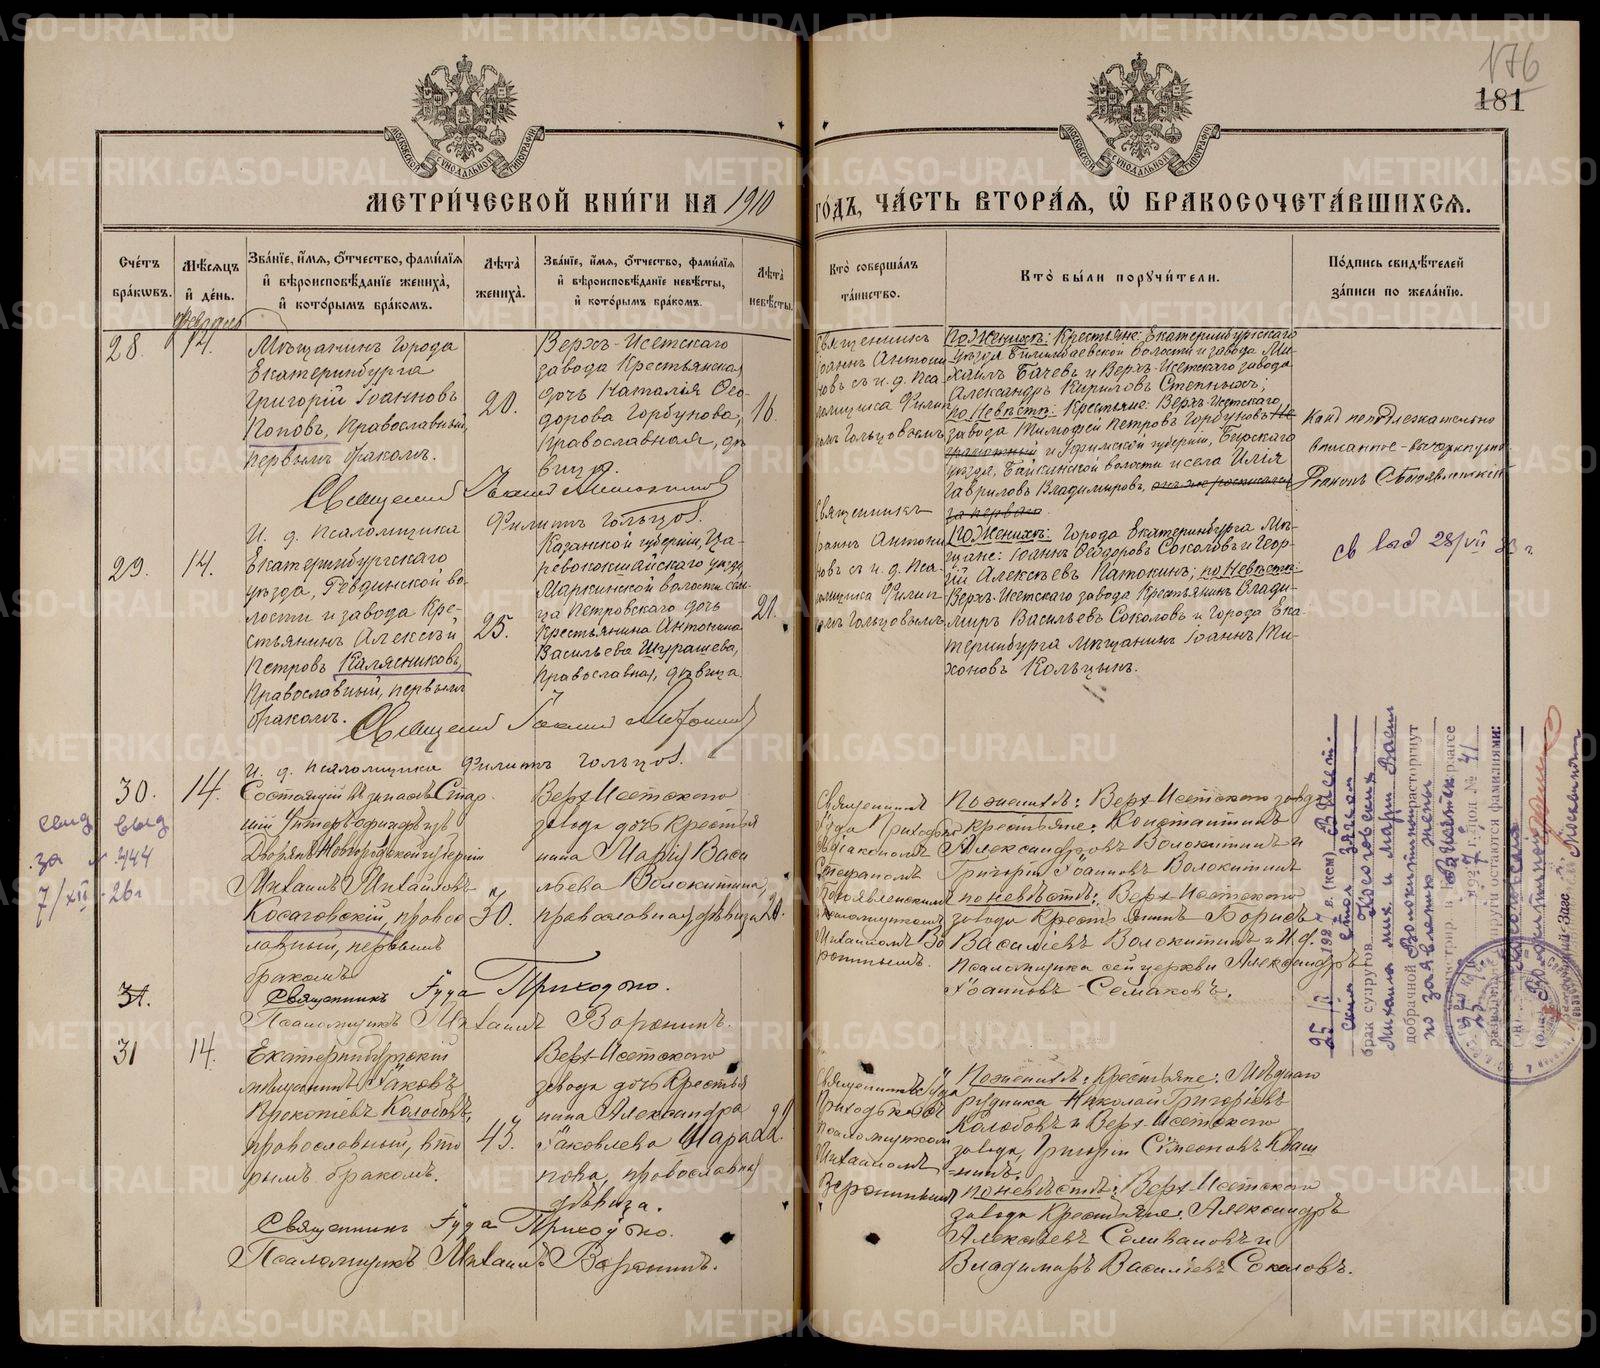 176
181
МЕТРИ́ЧЕСКОЙ КНИ́ГИ НА 1910
ГО́ДЪ, ЧА́СТЬ ВТОРА́Я, Ѡ БРАКОСОЧЕТА́ВШИХСЯ.
Сче́тъ бра́кѡвъ.
Мѣ́сяцъ и҆ де́нь.
Зва́нїе, и҆́мя, ѻ҆́тчество, фами́лїя
и҆ вѣроисповѣ́данїе жениха̀,
и҆ кото́рымъ бра́комъ.
Лѣта̀ жениха̀.
Зва́нїе, и҆́мя, ѻ҆́тчество, фами́лїя
и҆ вѣроисповѣ́данїе невѣ́сты,
и҆ кото́рымъ бра́комъ.
Лѣта̀ невѣ́сты.
Кто̀ соверша́лъ та́инство.
Кто̀ бы́ли поручи́тели.
По́дпись свидѣ́телей
за́писи по жела́нїю.
февраль
28.
14.
Мѣщанинъ города
Екатеринбурга
Григорій Іоанновъ
Поповъ, Православный,
первымъ бракомъ.
20.
Верхъ-Исетскаго
завода Крестьянская
дочь Наталія Ѳео-
дорова Горбунова,
Православная, дѣ-
вица.
16.
Священникъ
Іоаннъ Антони
новъ съ и. д. пса-
ломщика Филип
помъ Гольцовымъ
По Женихѣ: Крестьяне: Екатеринбургскаго
уѣзда Билимбаевской волости и завода Ми-
хаилъ Бачевъ и Верхъ-Исетскаго завода
Александръ Кириловъ Степныхъ;
по Невѣстѣ: Крестьяне: Верхъ-Исетскаго
завода Тимофей Петровъ Горбуновъ Не
грамотный и Уфимской губерніи, Бирскаго
уѣзда, Байкинской волости и села Илія
Гавриловъ Владимировъ,
за перваго
Священникъ
И. д. псаломщика Филиппъ Гольцов.
29.
14.
Екатеринбургскаго
уѣзда, Ревдинской во-
лости и завода Кре-
стьянинъ Алексѣй
Петровъ Калясниковъ,
Православный, первымъ
бракомъ.
25.
Казанской губерніи, Ца-
ревококшайскаго уѣзда
Маркинской волости
Петровскаго дочь
Крестьянина Антонина
Васильева Шурашева,
Православная, дѣвица.
21.
Священникъ
Іоаннъ Антони
новъ съ и. д. пса-
ломщика Филип
помъ Гольцовымъ
По Женихѣ: Города Екатеринбурга Мѣ-
щане: Іоаннъ Ѳеодоровъ Соколовъ и Геор-
гій Алексѣевъ Патокинъ; по Невѣстѣ:
Верхъ-Исетскаго завода Крестьянинъ Влади-
миръ Васильевъ Соколовъ и города Ека-
теринбурга мѣщанинъ Іоаннъ Ти-
хоновъ Кольцынъ.
Священникъ
И. д. псаломщика Филиппъ Гольцов.
30.
14.
свид выд
за № 444
7/XII-26г
Состоящій въ запасѣ Стар
шій Унтеръ-офицеръ изъ
Дворянъ Новгородской губерніи
Михаилъ Михайловъ
Косаговскій, правос
лавный, первымъ
бракомъ
30.
Верх Исетскаго
завода дочь крестья
нина Марія Васи
льева Волокитина,
православная, дѣвица
20.
Священникъ
Іуда Приходько
съ діакономъ
Стефаномъ
Богоявленскимъ
псаломщикомъ
Михаиломъ Во
ронинымъ.
По женихѣ: Верх Исетскаго завода
крестьяне: Константинъ
Александровъ Волокитинъ и
Григорій Іоанновъ Волокитинъ
по невѣстѣ: Верх Исетскаго
завода крестьянинъ Борисъ
Василіевъ Волокитинъ и И. д.
псаломщика сей церкви Александръ
Іоанновъ Семаковъ.
31.
Священникъ Іуда Приходько.
Псаломщикъ Михаилъ Воронинъ.
31
14.
Екатеринбургскій
мѣщанинъ Іаковъ
Прокопіевъ Колобовъ,
православный, вто
рымъ бракомъ.
43.
Верх-Исетскаго
завода дочь крестья
нина Александра
Іаковлева Шара
пова, православная
дѣвица.
22.
Священникъ Іуда
Приходько съ
псаломщикомъ
Михаиломъ
Воронинымъ
По женихѣ: Крестьяне: Мѣднаго
рудника Николай Григоріевъ
Колобовъ и Верх-Исетскаго
завода, Григорій Симеоновъ Кваш
нинъ.
по невѣстѣ: Верх-Исетскаго
завода крестьяне: Александръ
Алексѣевъ Селивановъ и
Владимиръ Василіевъ Соколовъ.
Священникъ Іуда Приходько.
Псаломщикъ Михаилъ Воронинъ.
св выд 28/VII
брак супругов Косоговских
Михаила Мих. и Марии Васил
добрачной Волокитиной расторгнут
по заявлению жены
1927 г. под № 41
супруги остаются фамилиями:
METRIKI.GASO-URAL.RU